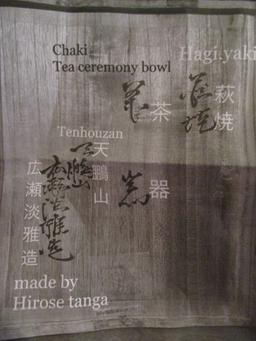 Chaki
Tea ceremony bowl
Hagi.yaki
萩焼
茶器
Tenhouzan
天鵬山
広瀬淡雅造
made by
Hirose tanga
萩焼
茶器
天鵬山
広瀬淡雅造